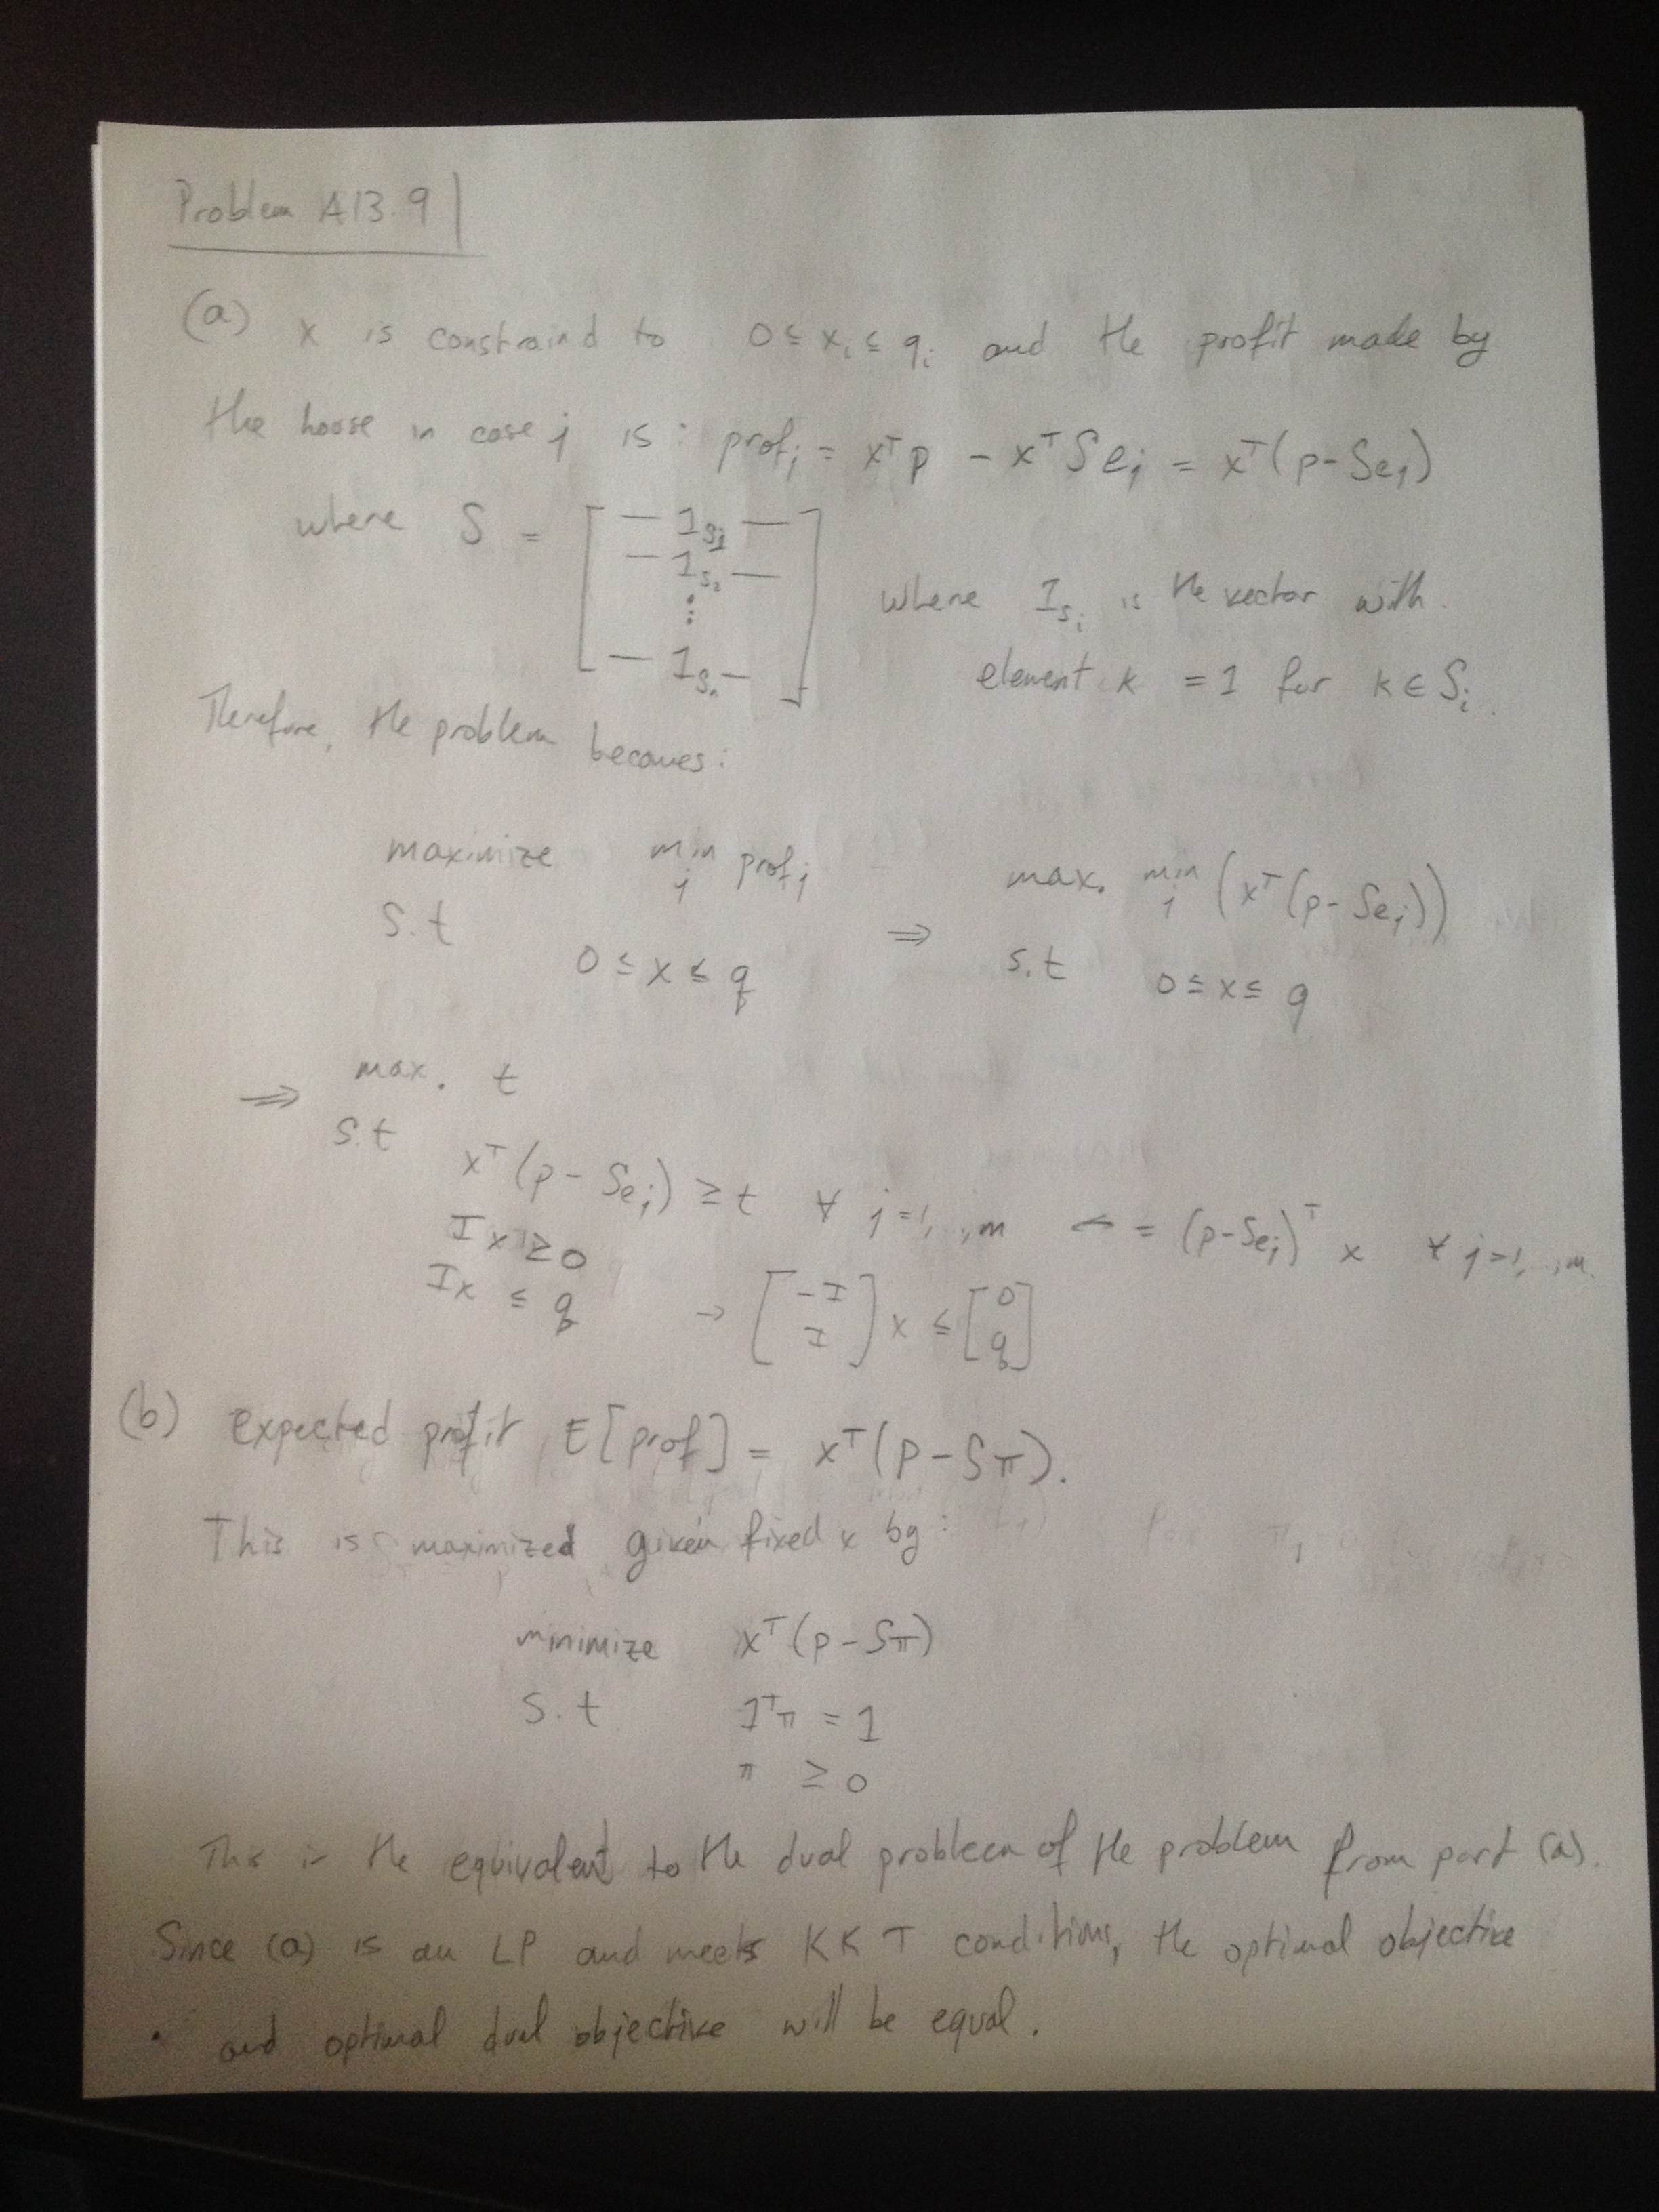 Problem A13.9
(a) x is constraind to 0 ≤ xᵢ ≤ qᵢ and the profit made by
the house in case j is: profⱼ = xᵀp - xᵀSeⱼ = xᵀ(p-Seⱼ)
where S = [ — 1_S₁ — — 1_S₂ — ⋮ — 1_Sₙ — ]
where 1_Sᵢ is the vector with
element k = 1 for k ∈ Sᵢ.
Therefore, the problem becomes:
maximize min_j profⱼ ⇒ max. min_j (xᵀ(p-Seⱼ))
s.t 0 ≤ x ≤ q s.t 0 ≤ x ≤ q
⇒ max. t
s.t xᵀ(p - Seⱼ) ≥ t ∀ j=1,...,m ← = (p-Seⱼ)ᵀ x ∀ j=1,...,m.
Ix ≥ 0
Ix ≤ q → [-I I] x ≤ [0 q]
(b) Expected profit E[prof] = xᵀ(p-Sπ).
This is maximized given fixed x by:
minimize xᵀ(p-Sπ)
s.t 1ᵀπ = 1
π ≥ 0
This is the equivalent to the dual problem of the problem from part (a).
Since (a) is an LP and meets KKT conditions, the optimal objective
and optimal dual objective will be equal.